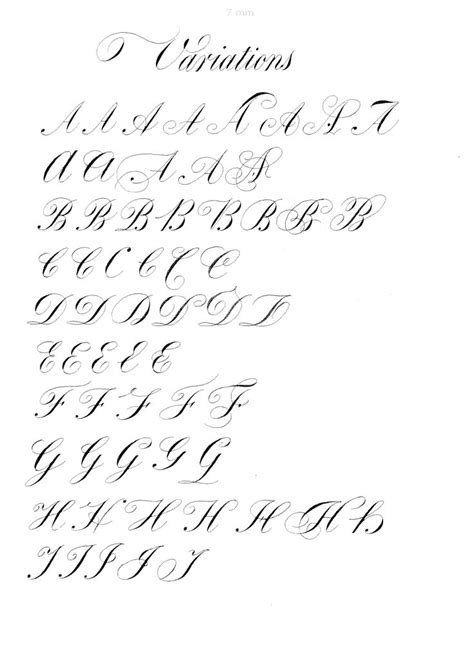 7 mm
Variations
A A A A A A A A
A A A A A
B B B B B B B B
C C C C C C
D D D D D D
E E E E E
F F F F F
G G G G G
H H H H H H H
I I I I I